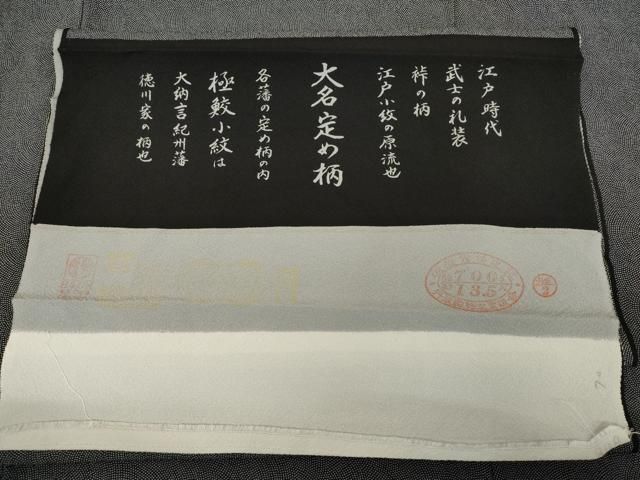 江戸時代
武士の礼装
裃の柄
江戸小紋の原流也
大名定め柄
各藩の定め柄の内
極鮫小紋は
大納言紀州藩
徳川家の柄也
700
13.5